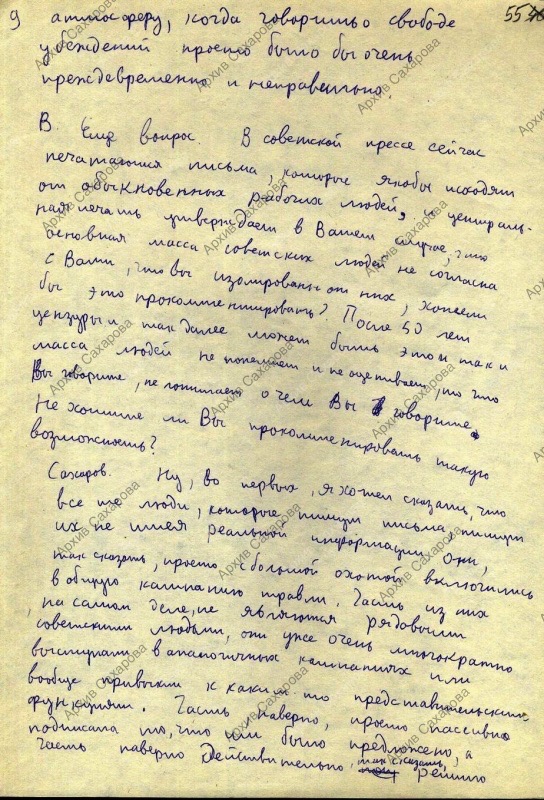 9 атмосферу, когда говоришь о свободе 55
убеждений просто было бы очень
преждевременно и неправильно.
В. Еще вопрос. В советской прессе сейчас
печатаются письма, которые якобы исходят
от обыкновенных рабочих людей, и централь-
ная печать утверждает в Вашем случае, что
основная масса советских людей не согласна
с Вами, что вы изолированы от них, хотели
бы это прокомментировать? После 50 лет
цензуры и так далее может быть это и так и
масса людей не понимает и не оценивает, то что
Вы говорите, не понимает о чем Вы говорите.
Не хотите ли Вы прокомментировать такую
возможность?
Сахаров. Ну, во первых, я хотел сказать, что
все те люди, которые пишут письма, пишут
их не имея реальной информации. Они,
так сказать, просто с большой охотой включились
в общую кампанию травли. Часть из них
, на самом деле, не являются рядовыми
советскими людьми, они уже очень многократно
выступали в аналогичных кампаниях или
вообще привыкли к каким то представительским
функциям. Часть наверно, просто пассивно
подписала то, что им было предложено, а
часть наверно действительно, так сказать, решило
Архив Сахарова